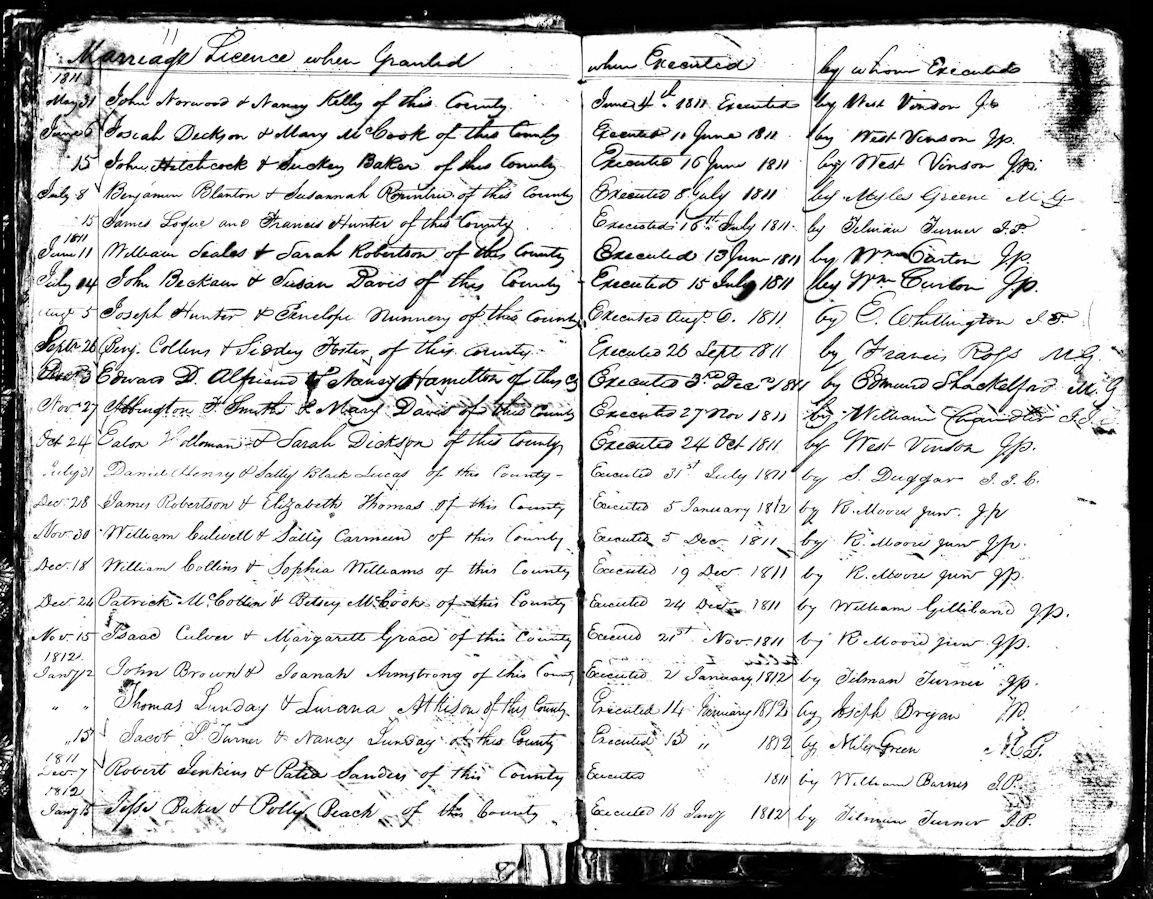 11
Marriage Licence when Granted when Executed by whom Executed
1811
May 31 John Norwood & Nancy Kelly of this County June 4th 1811 Executed by West Vinson Jp
June 6 Josiah Dickson & Mary McCook of this County Executed 10 June 1811 by West Vinson Jp.
15 John Hitchcock & Suckey Baker of this County Executed 16 June 1811 by West Vinson Jp.
July 8 Benjamin Blanton & Susannah Rountree of this County Executed 8 July 1811 by Myles Greene M.G
15 James Logue and Francis Hunter of this County Executed 16th July 1811 by Tilman Turner J.P.
1811
June 11 William Scales & Sarah Robertson of this County Executed 13 June 1811 by Wm Carton Jp.
July 14 John Beckam & Susan Davis of this County Executed 15 July 1811 by Wm Curton Jp.
Augt 5 Joseph Hunter & Penelope Nunnery of this County Executed Augt. 6. 1811 by E. Whillington J.P.
Septr 26 Benj. Collins & Siddey Foster of this County Executed 26 Sept 1811 by Francis Ross M.G.
3 Edward D. & Nancy Hamelton of this Cy Executed 3rd Decr. 1811 by Edmund Shackelford M.G
Nov. 27 Abbington F. Smith & Mary Davis of this County Executed 27 Nov 1811 by William Chandler
Oct 24 Eaton Holloman & Sarah Dickson of this County Executed 24 Oct 1811 by West Vinson Jp.
July 31 Daniel Henry & Sally Black Lucas of this County Executed 31st July 1811 by S. Duggar J.I.C.
Dec. 28 James Robertson & Elizabeth Thomas of this County Executed 5 January 1812 by R. Moore Junr. Jp
Nov. 30 William Culwell & Sally of this County Executed 5 Dec. 1811 by R. Moore Junr Jp.
Dec. 18 William Collins & Sophia Williams of this County Executed 19 Dec. 1811 by R. Moore Junr Jp.
Dec 24 Patrick & Betsey McCook of this County Executed 24 Dec. 1811 by William Gilliland Jp.
Nov. 15 Isaac Culver & Margarett Grace of this County Executed 21st Nov. 1811 by R Moore Junr Jp.
1812.
Jany 2 John Brown & Joanah Armstrong of this County Executed 2 January 1812 by Tilman Turner Jp.
" " Thomas Lunday & Lurana Atkison of this County Executed 14 1812 by Joseph Bryan JP.
" 15 Jacob P Turner & Nancy Lunday of this County Executed 15 " 1812 by Miles Green M.G.
1811
Dec. 7 Robert Jenkins & Sanders of this County Executed 1811 by William Barnes J.P.
1812
Jany 15 Jesse Baker & Polly Peach of this County Executed 16 Jany 1812 by Tilman Turner J.P.